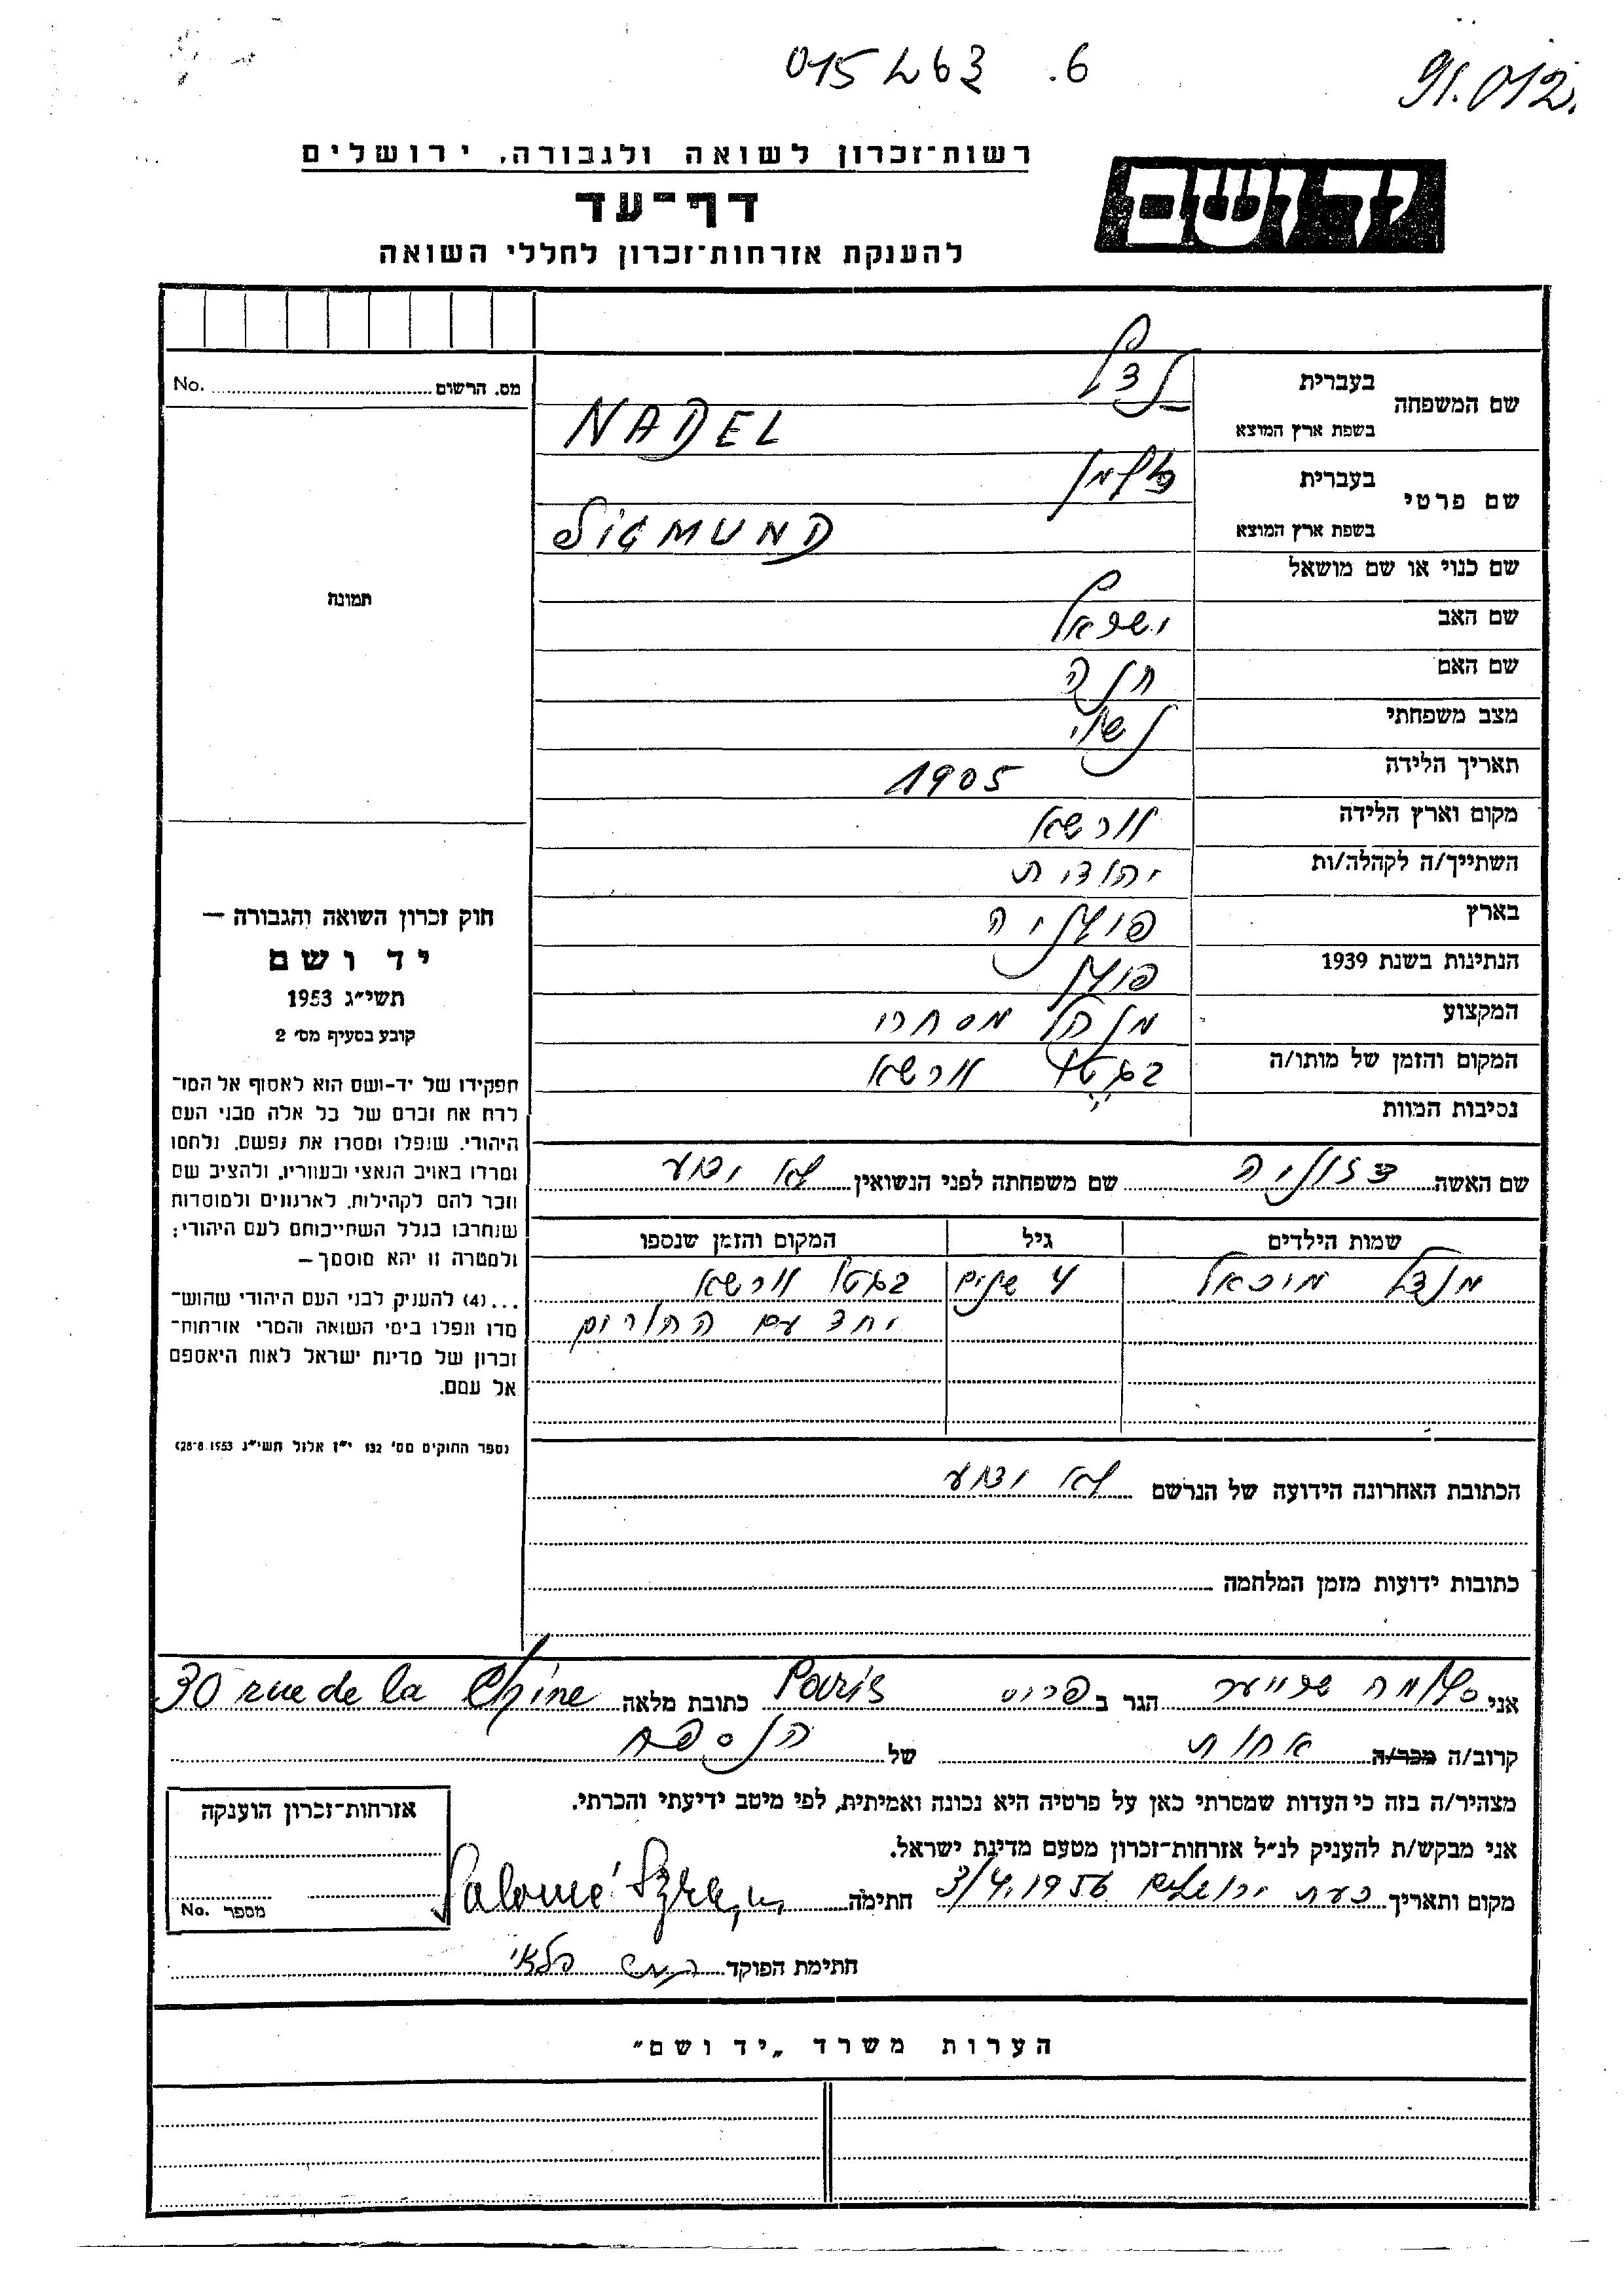 015263 .6
91.012.
רשות־זכרון לשואה ולגבורה, ירושלים
יד ושם
דף־עד
להענקת אזרחות־זכרון לחללי השואה
No. מס. הרשום
תמונה
שם המשפחה
בעברית נדל
בשפת ארץ המוצא NADEL
שם פרטי
בעברית
בשפת ארץ המוצא SIGMUND
שם כנוי או שם מושאל
שם האב ישראל
שם האם חנה
מצב משפחתי נשוי
תאריך הלידה 1905
מקום וארץ הלידה וורשא
השתייך/ה לקהלה/ות יהודית
בארץ פולניה
הנתינות בשנת 1939 פולן
המקצוע מנהל מסחרי
המקום והזמן של מותו/ה בגטו וורשא
נסיבות המוות
שם האשה שם משפחתה לפני הנשואין לא ידוע
שמות הילדים גיל המקום והזמן שנספו
מנדל מיכאל 4 שנים בגטו וורשא
יחד עם ההורים
חוק זכרון השואה והגבורה —
יד ושם
תשי״ג 1953
קובע בסעיף מס׳ 2
תפקידו של יד-ושם הוא לאסוף אל המו־
לדת את זכרם של כל אלה מבני העם
היהודי, שנפלו ומסרו את נפשם, נלחמו
ומרדו באויב הנאצי ובעוזריו, ולהציב שם
וזכר להם לקהילות, לארגונים ולמוסדות
שנחרבו בגלל השתייכותם לעם היהודי;
ולמטרה זו יהא מוסמך —
...(4) להעניק לבני העם היהודי שהוש־
מדו ונפלו בימי השואה והמרי אזרחות־
זכרון של מדינת ישראל לאות היאספם
אל עמם.
(ספר החוקים מס׳ 132 י״ז אלול תשי״ג 28.8.1953)
הכתובת האחרונה הידועה של הנרשם לא ידוע
כתובות ידועות מזמן המלחמה
אני סלומה שרייער הגר ב פריס Paris כתובת מלאה 30 rue de la Chine
קרוב/ה מכר/ה אחות של הנספה
מצהיר/ה בזה כי העדות שמסרתי כאן על פרטיה היא נכונה ואמיתית, לפי מיטב ידיעתי והכרתי.
אני מבקש/ת להעניק לנ״ל אזרחות־זכרון מטעם מדינת ישראל.
מקום ותאריך כעת ירושלים 3/4.1956 חתימה Salomé
חתימת הפוקד
אזרחות־זכרון הוענקה
No. מספר
הערות משרד „יד ושם״